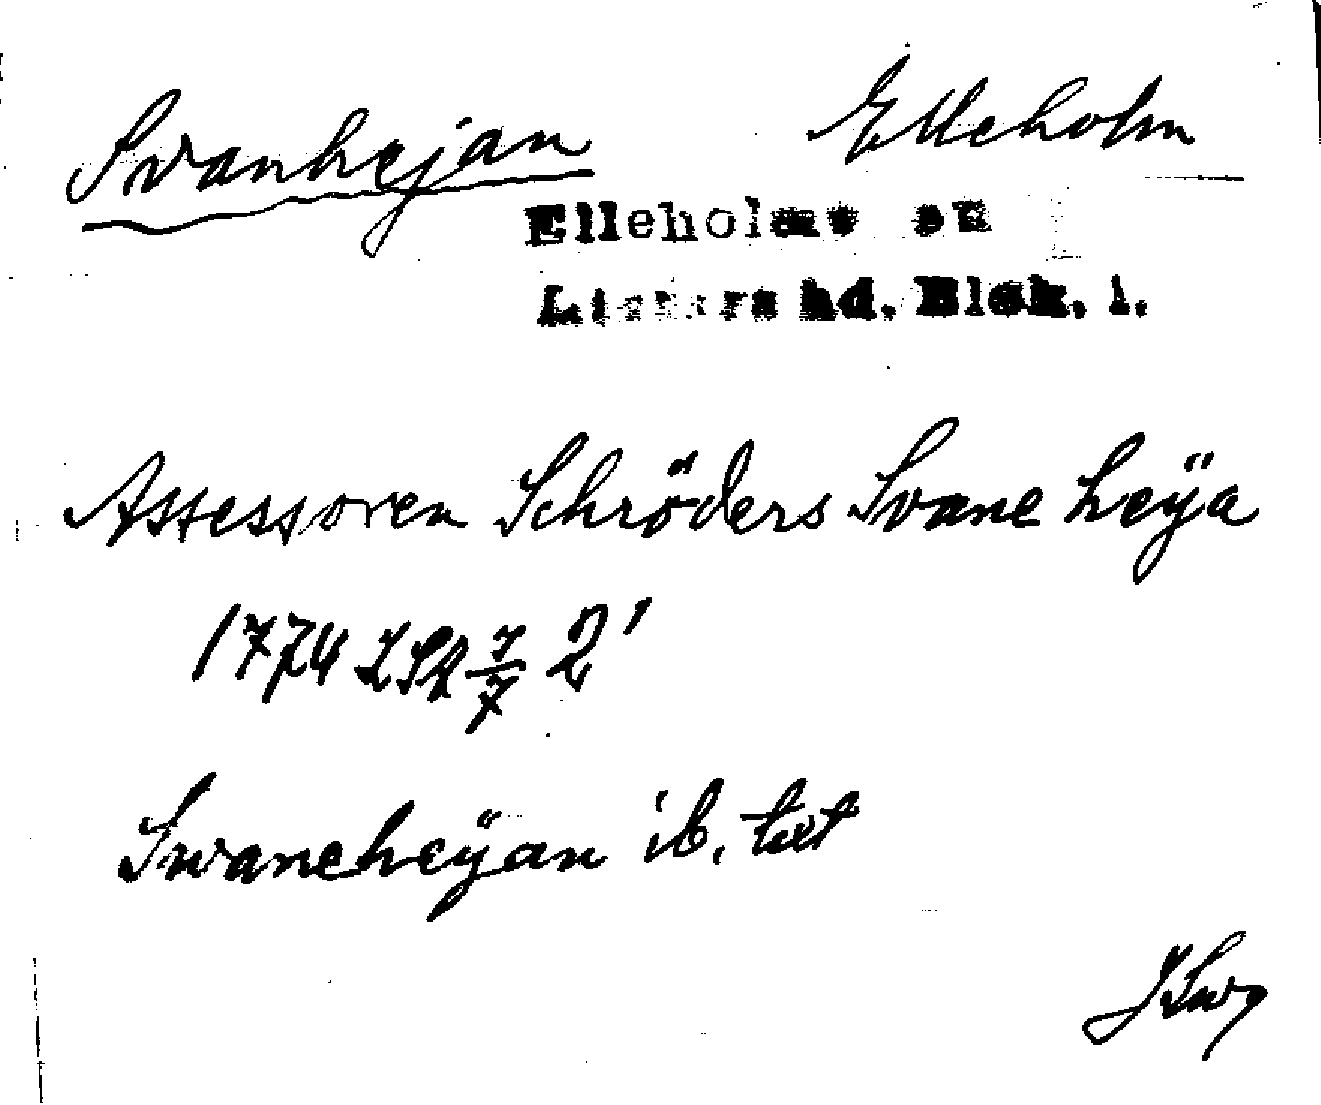 Svanhejan Elleholm
Elleholms sn
Listers hd. Blek. l.
Assessoren Schröders Svane heÿa
1774 LSR 7/7 2'
Swaneheÿan ib. txt